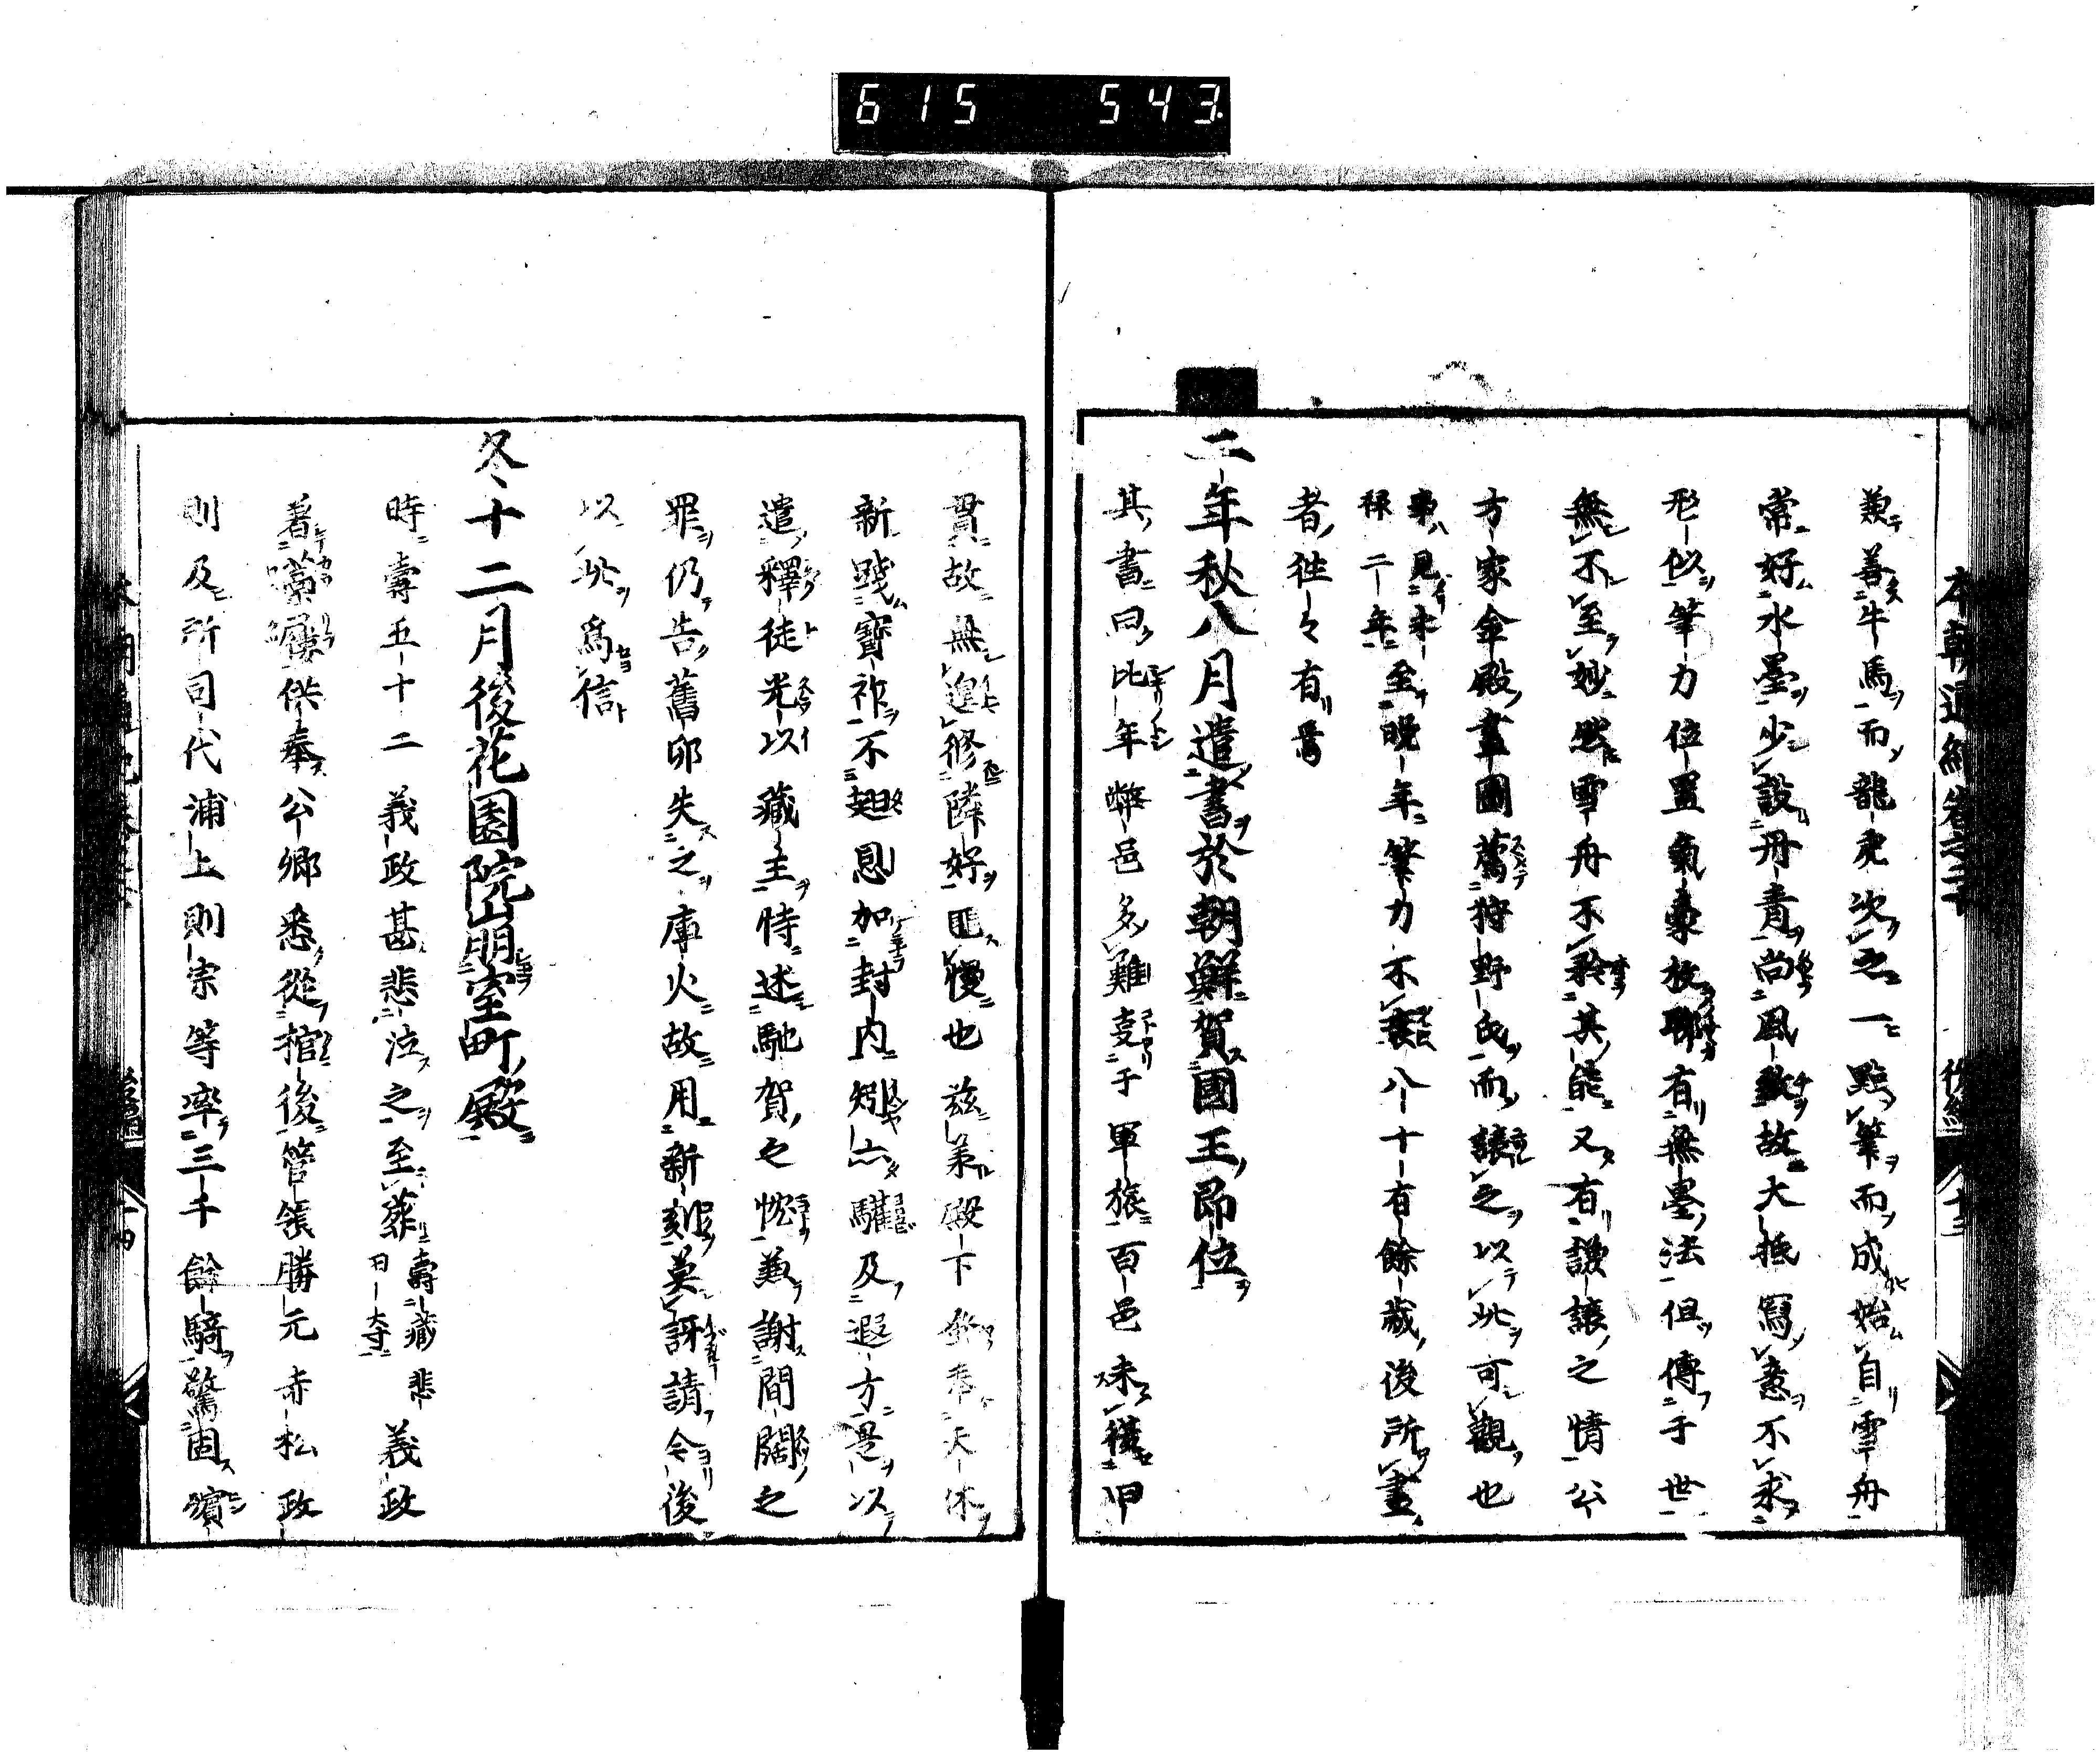 615 543
本朝通紀卷之二十 後編 十三
兼善牛馬而龍虎次之一點筆而成始自雪舟
常好水墨少設丹青尚風致故大抵寫意不求
形似筆力位置氣豪放聊有無墨法但傳于世
無不至妙然雪舟不矜其能又有謙讓之情公
方家金殿畫圖薦狩野氏而讓之以此可觀也
事見未至晩年筆力不衰八十有餘歲後所畫
祿二年
者往々有焉
二年秋八月遣書於朝鮮賀國王即位
其書曰比年弊邑多難支于軍旅百邑未獲甲
貫故無遑修隣好匪慢也茲承殿下奉天休
新踐寶祚不翅恩加封内矧亦驩及遐方是以
遣釋徒光以藏主特述馳賀之忱兼謝間闊之
罪仍告舊印失之庫火故用新刻莫訝請今後
以此爲信
冬十二月後花園院崩室町殿
時壽五十二義政甚悲泣之至葬壽藏悲
日大寺 義政
著藁履供奉公卿悉從棺後管領勝元赤松政
則及所司代浦上則宗等率三千餘騎驚固殯